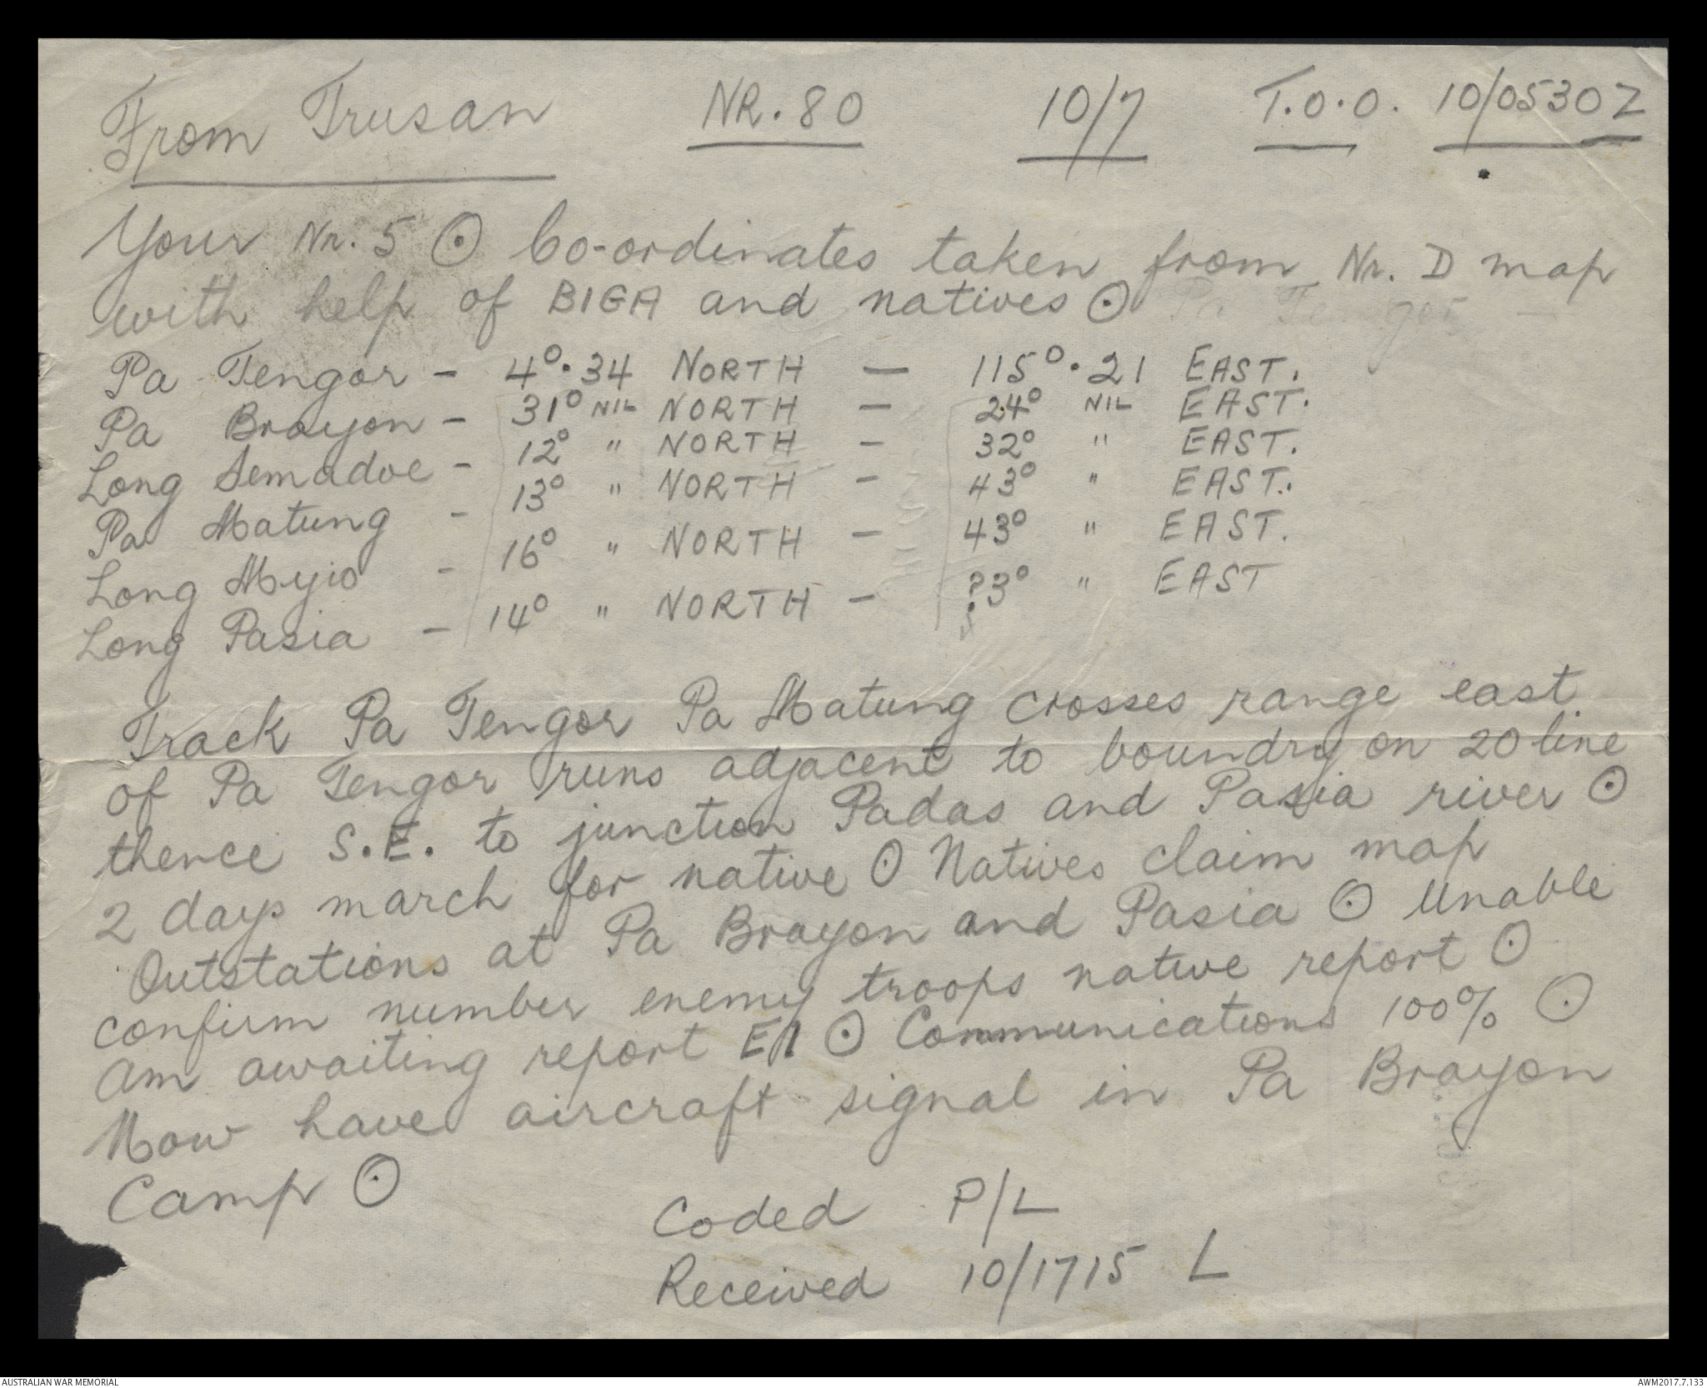 From Trusan NR. 80 10/7 T.O.O. 10/0530Z
Your Nr. 5 ⊙ Co-ordinates taken from Nr. D map
with help of BIGA and natives ⊙ Pa Tengor -
Pa Tengor - 4°.34 NORTH - 115°.21 EAST.
Pa Brayon - 31° NIL NORTH - 24° NIL EAST.
Long Semadoe - 12° " NORTH - 32° " EAST.
Pa Matung - 13° " NORTH - 43° " EAST.
Long Myio - 16° " NORTH - 43° " EAST.
Long Pasia - 14° " NORTH - ?3° " EAST
Track Pa Tengor Pa Matung crosses range east
of Pa Tengor runs adjacent to boundry on 20 line
thence S.E. to junction Padas and Pasia river ⊙
2 days march for native ⊙ Natives claim map
Outstations at Pa Brayon and Pasia ⊙ Unable
confirm number enemy troops native report ⊙
Am awaiting report E1 ⊙ Communications 100% ⊙
Now have aircraft signal in Pa Brayon
Camp ⊙
Coded P/L
Received 10/1715 L
AUSTRALIAN WAR MEMORIAL AWM2017.7.133